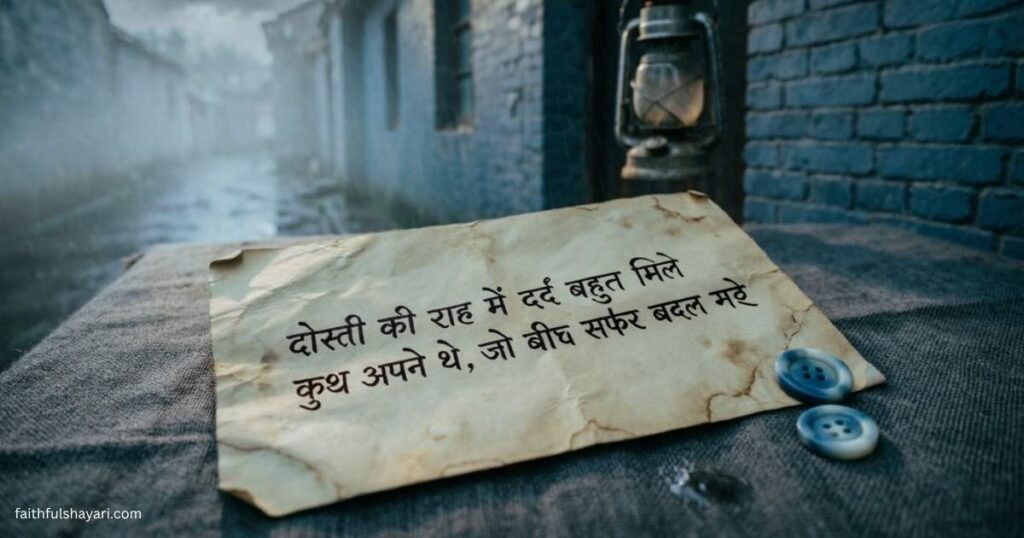 दोस्ती की राह में दर्द बहुत मिले
कुथ अपने थे, जो बीघ सफर बदल मरे
faithfulshayari.com